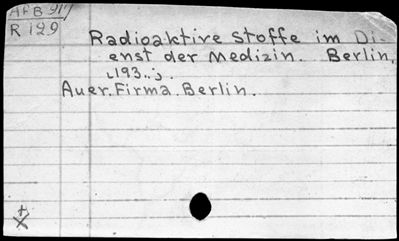 AFB 917
R 129
Radioaktive Stoffe im Di-
enst der Medizin. Berlin,
193..
Auer. Firma. Berlin.